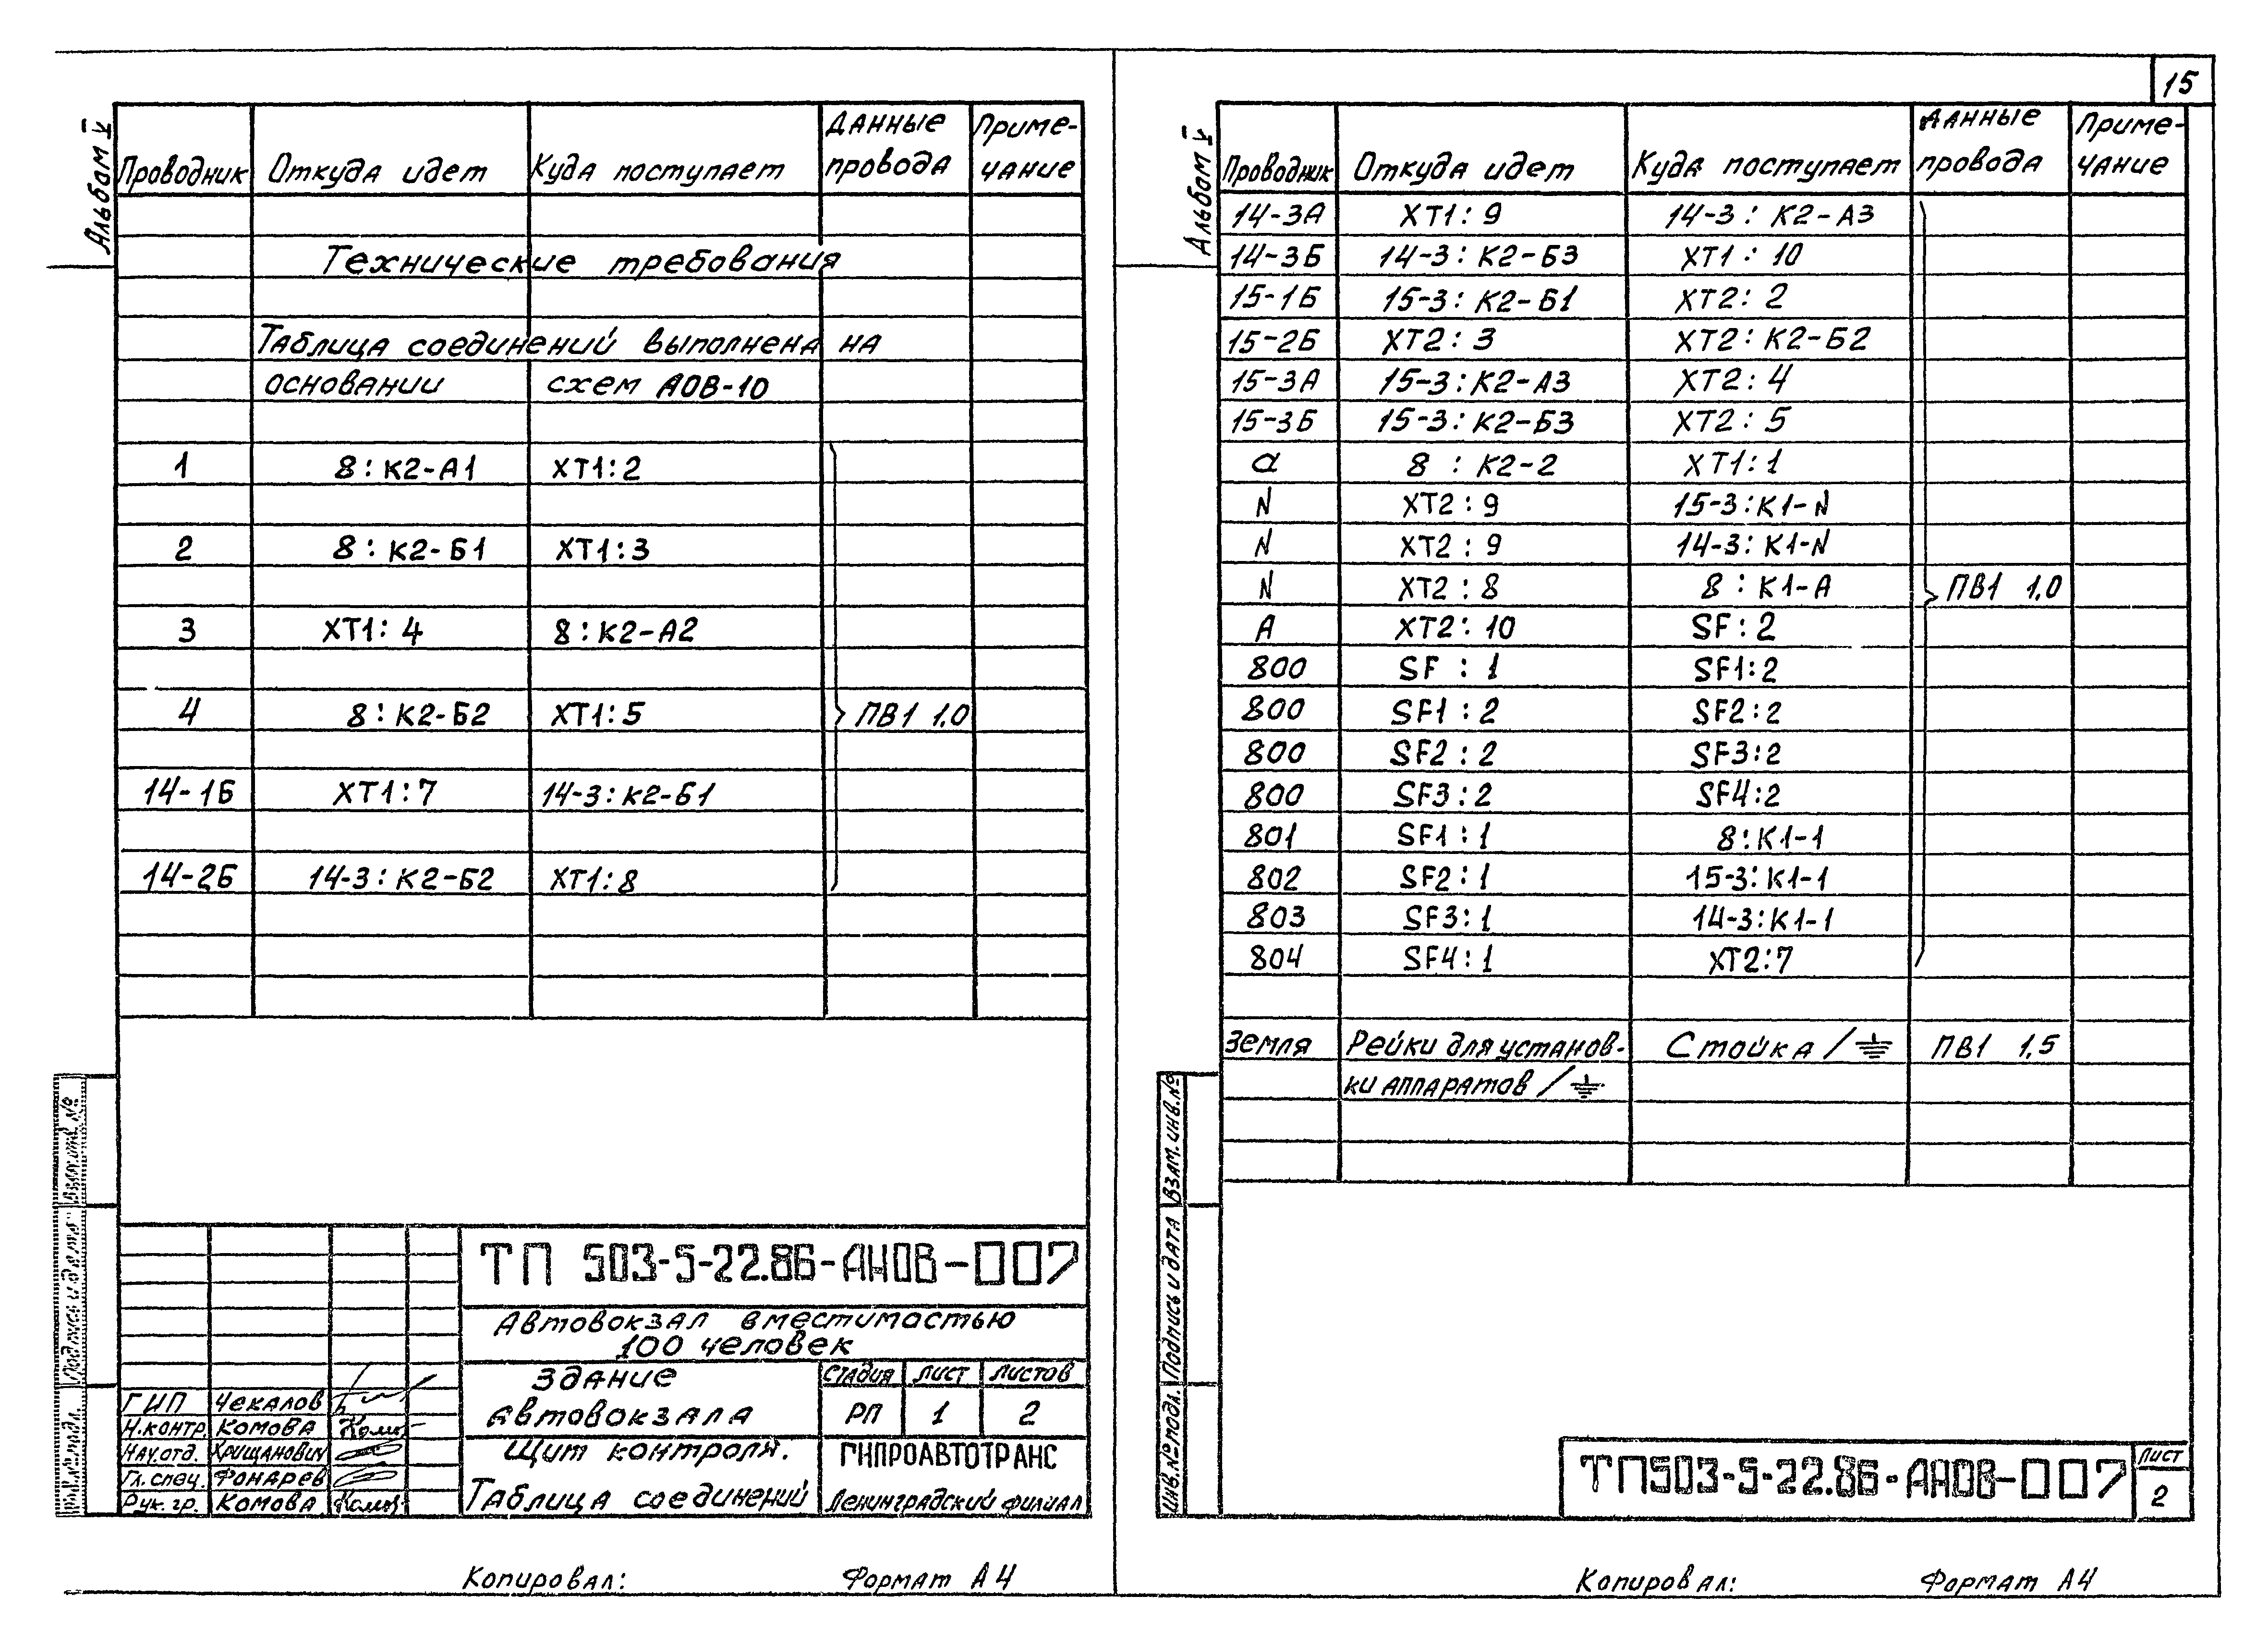 15
Альбом V
Проводник Откуда идет Куда поступает Данные провода Приме-чание
Технические требования
Таблица соединений выполнена на
основании схем АОВ-10
1 8:К2-А1 ХТ1:2
2 8:К2-Б1 ХТ1:3
3 ХТ1:4 8:К2-А2
4 8:К2-Б2 ХТ1:5 ПВ1 1,0
14-1Б ХТ1:7 14-3:К2-Б1
14-2Б 14-3:К2-Б2 ХТ1:8
Взам. инв. №
Подпись и дата
Инв. № подл.
ТП 503-5-22.86-АНОВ-007
Автовокзал вместимостью
100 человек
Здание
автовокзала
Стадия Лист Листов
РП 1 2
Щит контроля.
Таблица соединений
ГИПРОАВТОТРАНС
Ленинградский филиал
ГИП Чекалов
Н.контр. Комова
Нач.отд. Хрищанович
Гл. спец. Фонарев
Рук. гр. Комова
Копировал: Формат А4
Альбом V
Проводник Откуда идет Куда поступает Данные провода Приме-чание
14-3А ХТ1:9 14-3:К2-А3
14-3Б 14-3:К2-Б3 ХТ1:10
15-1Б 15-3:К2-Б1 ХТ2:2
15-2Б ХТ2:3 ХТ2:К2-Б2
15-3А 15-3:К2-А3 ХТ2:4
15-3Б 15-3:К2-Б3 ХТ2:5
а 8:К2-2 ХТ1:1
N ХТ2:9 15-3:К1-N
N ХТ2:9 14-3:К1-N
N ХТ2:8 8:К1-А ПВ1 1,0
А ХТ2:10 SF:2
800 SF:1 SF1:2
800 SF1:2 SF2:2
800 SF2:2 SF3:2
800 SF3:2 SF4:2
801 SF1:1 8:К1-1
802 SF2:1 15-3:К1-1
803 SF3:1 14-3:К1-1
804 SF4:1 ХТ2:7
Земля Рейки для установ- Стойка/⏚ ПВ1 1,5
ки аппаратов/⏚
Взам. инв. №
Подпись и дата
Инв. № подл.
ТП503-5-22.86-АНОВ-007
Лист
2
Копировал: Формат А4